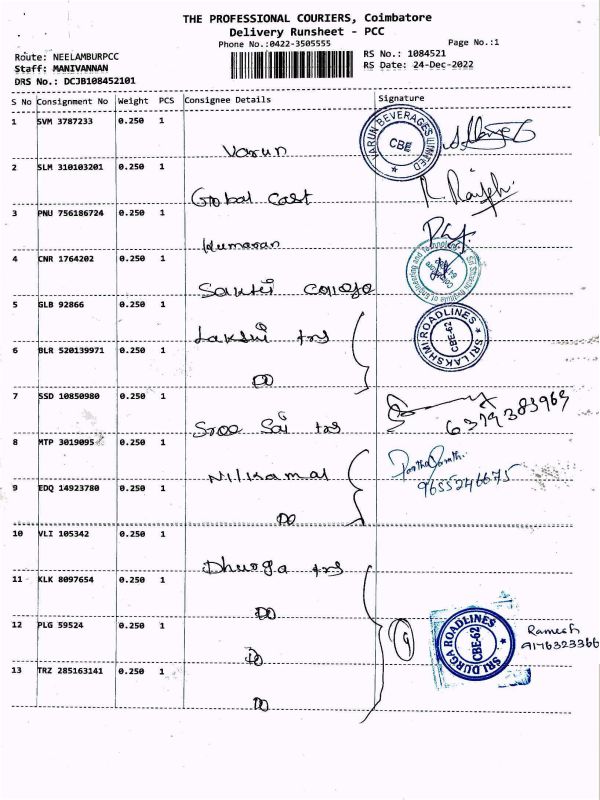 THE PROFESSIONAL COURIERS, Coimbatore
Delivery Runsheet - PCC
Phone No.:0422-3505555
Page No.:1
Route: NEELAMBURPCC
RS No.: 1084521
Staff: MANIVANNAN
RS Date: 24-Dec-2022
DRS No.: DCJB108452101
S No Consignment No Weight PCS Consignee Details Signature
1 SVM 3787233 0.250 1
Varun
VARUN BEVERAGES LIMITED CBE
2 SLM 310103201 0.250 1
Global Cast
3 PNU 756186724 0.250 1
Kumaran
4 CNR 1764202 0.250 1
Sakthi College
5 GLB 92866 0.250 1
Lakshi trs
SRI LAKSHMI ROADLINES CBE-62
6 BLR 520139971 0.250 1
DO
7 SSD 10850980 0.250 1
Sree Sai trs
6379383969
8 MTP 3019095 0.250 1
Nilkamal
9655246675
9 EDQ 14923780 0.250 1
DO
10 VLI 105342 0.250 1
Dhurga trs
11 KLK 8097654 0.250 1
DO
12 PLG 59524 0.250 1
DO
SRI DURGA ROADLINES CBE-62
Ramesh
9176323366
13 TRZ 285163141 0.250 1
DO